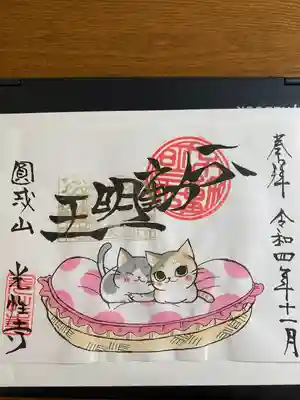 奉拝 令和四年十一月
不動明王
圓珱山
光性寺